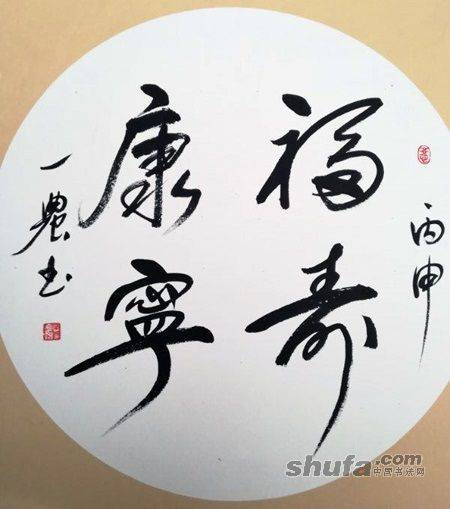 丙申
福寿
康寧
一農书
shufa.com
中国书法网